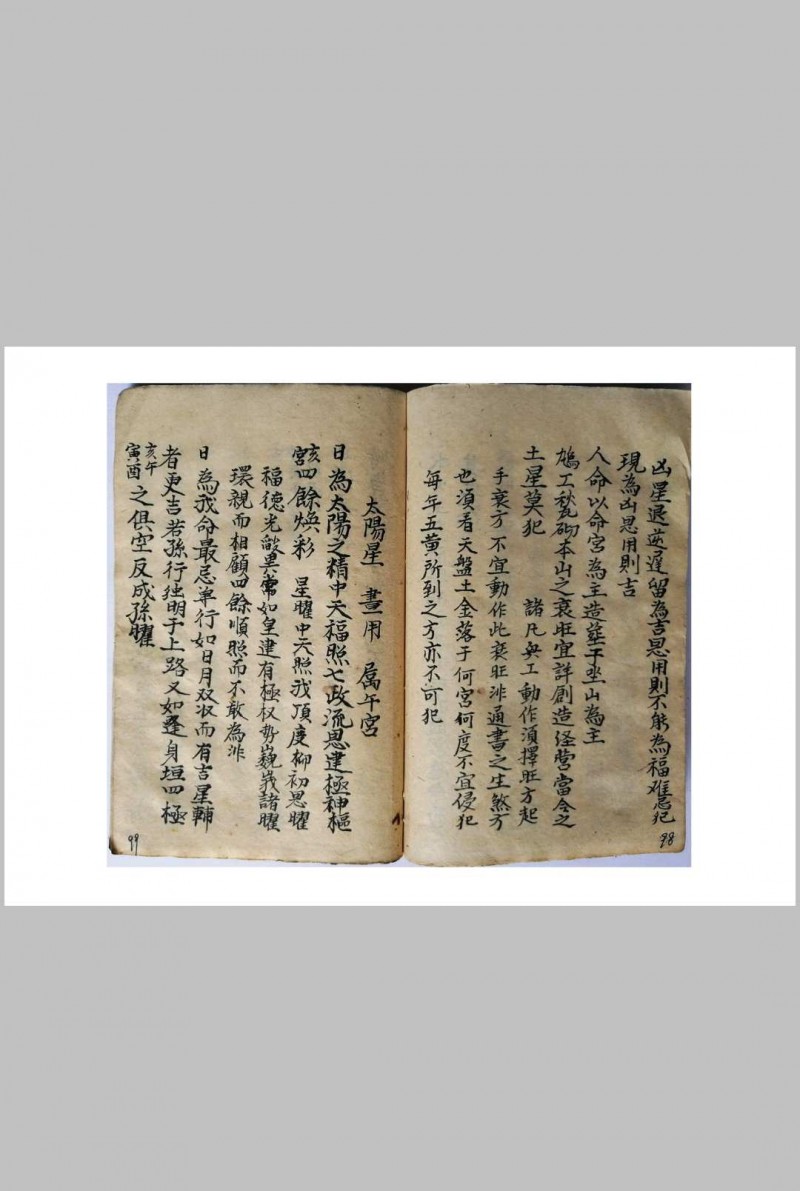 凶星退逆遲留為吉恩用則不能為福难忌犯
現為凶恩用則吉
人命以命宮為主造塟干坐山為主
鳩工甃砌本山之衰旺宜詳創造经营當令之
土星莫犯　諸凡兴工動作湏擇旺方起
手衰方不宜動作此衰旺非通書之生煞方
也湏看天盤土金落于何宮何度不宜侵犯
每年五黄所到之方亦不可犯
98
太陽星　晝用　属午宮
日為太陽之精中天福照七政流恩建極神樞
宮四餘焕彩　星曜中天照我頂度柳初恩曜
福德光異常如皇建有極权势巍峩諸曜
環親而相顧四餘順照而不敢為非
日為我命最忌单行如日月双而有吉星輔
者更吉若孫行明于上路又如身垣四極
亥午寅酉之俱空反成孫曜
99